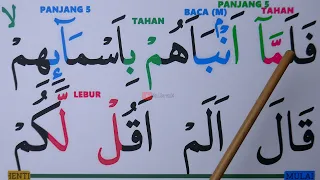 PANJANG 5
PANJANG 5 TAHAN BACA (M) TAHAN
لا
فَلَمَّآ اَنْۢبَاَهُمْ بِاَسْمَاۤىِٕهِمْ
LEBUR
قَالَ اَلَمْ اَقُلْ لَّكُمْ